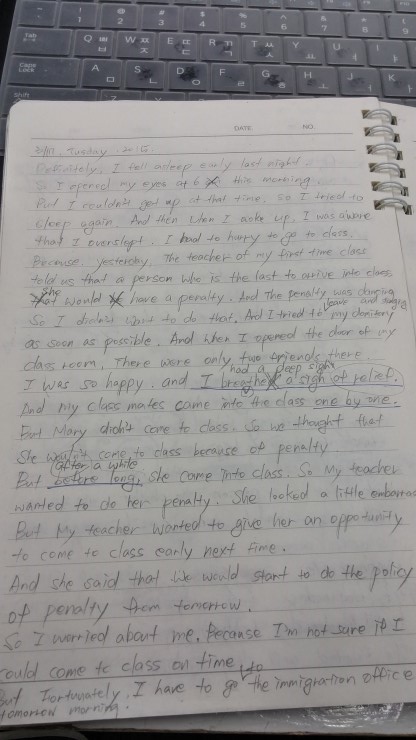 Tab
Q ㅂ W ㅈ E ㄷ R ㄱ T ㅅ Y ㅛ U ㅕ
Caps Lock
A ㅁ S ㄴ D ㅇ F ㄹ G ㅎ H ㅗ J ㅓ
Shift
DATE. NO.
Tuesday. 2015.
Definitely, I fell asleep early last night
So I opened my eyes at 6 this morning.
But I couldn't get up at that time, so I tried to
sleep again. And then when I woke up, I was aware
that I overslept. I had to hurry to go to class.
Because, yesterday, The teacher of my first time class
told us that a person who is the last to arrive into class
she
would have a penalty. And the penalty was dancing
leave and singing
So I didn't want to do that. And I tried to my domitory
as soon as possible. And when I opened the door of my
class room, There were only two friends there.
had a deep sigh
I was so happy. and I breathe a sigh of relief.
And my class mates came into the class one by one.
But Mary didn't come to class. So we thought that
She wouldn't come to class because of penalty
After a while
But before long, she came into class. So My teacher
wanted to do her penalty. She looked a little embarras
But My teacher wanted to give her an oppotunity
to come to class early next time.
And she said that We would start to do the policy
of penalty from tomorrow.
So I worried about me. Because I'm not sure if I
could come to class on time
to
But Fortunately, I have to go the immigration office
tomorrow morning.